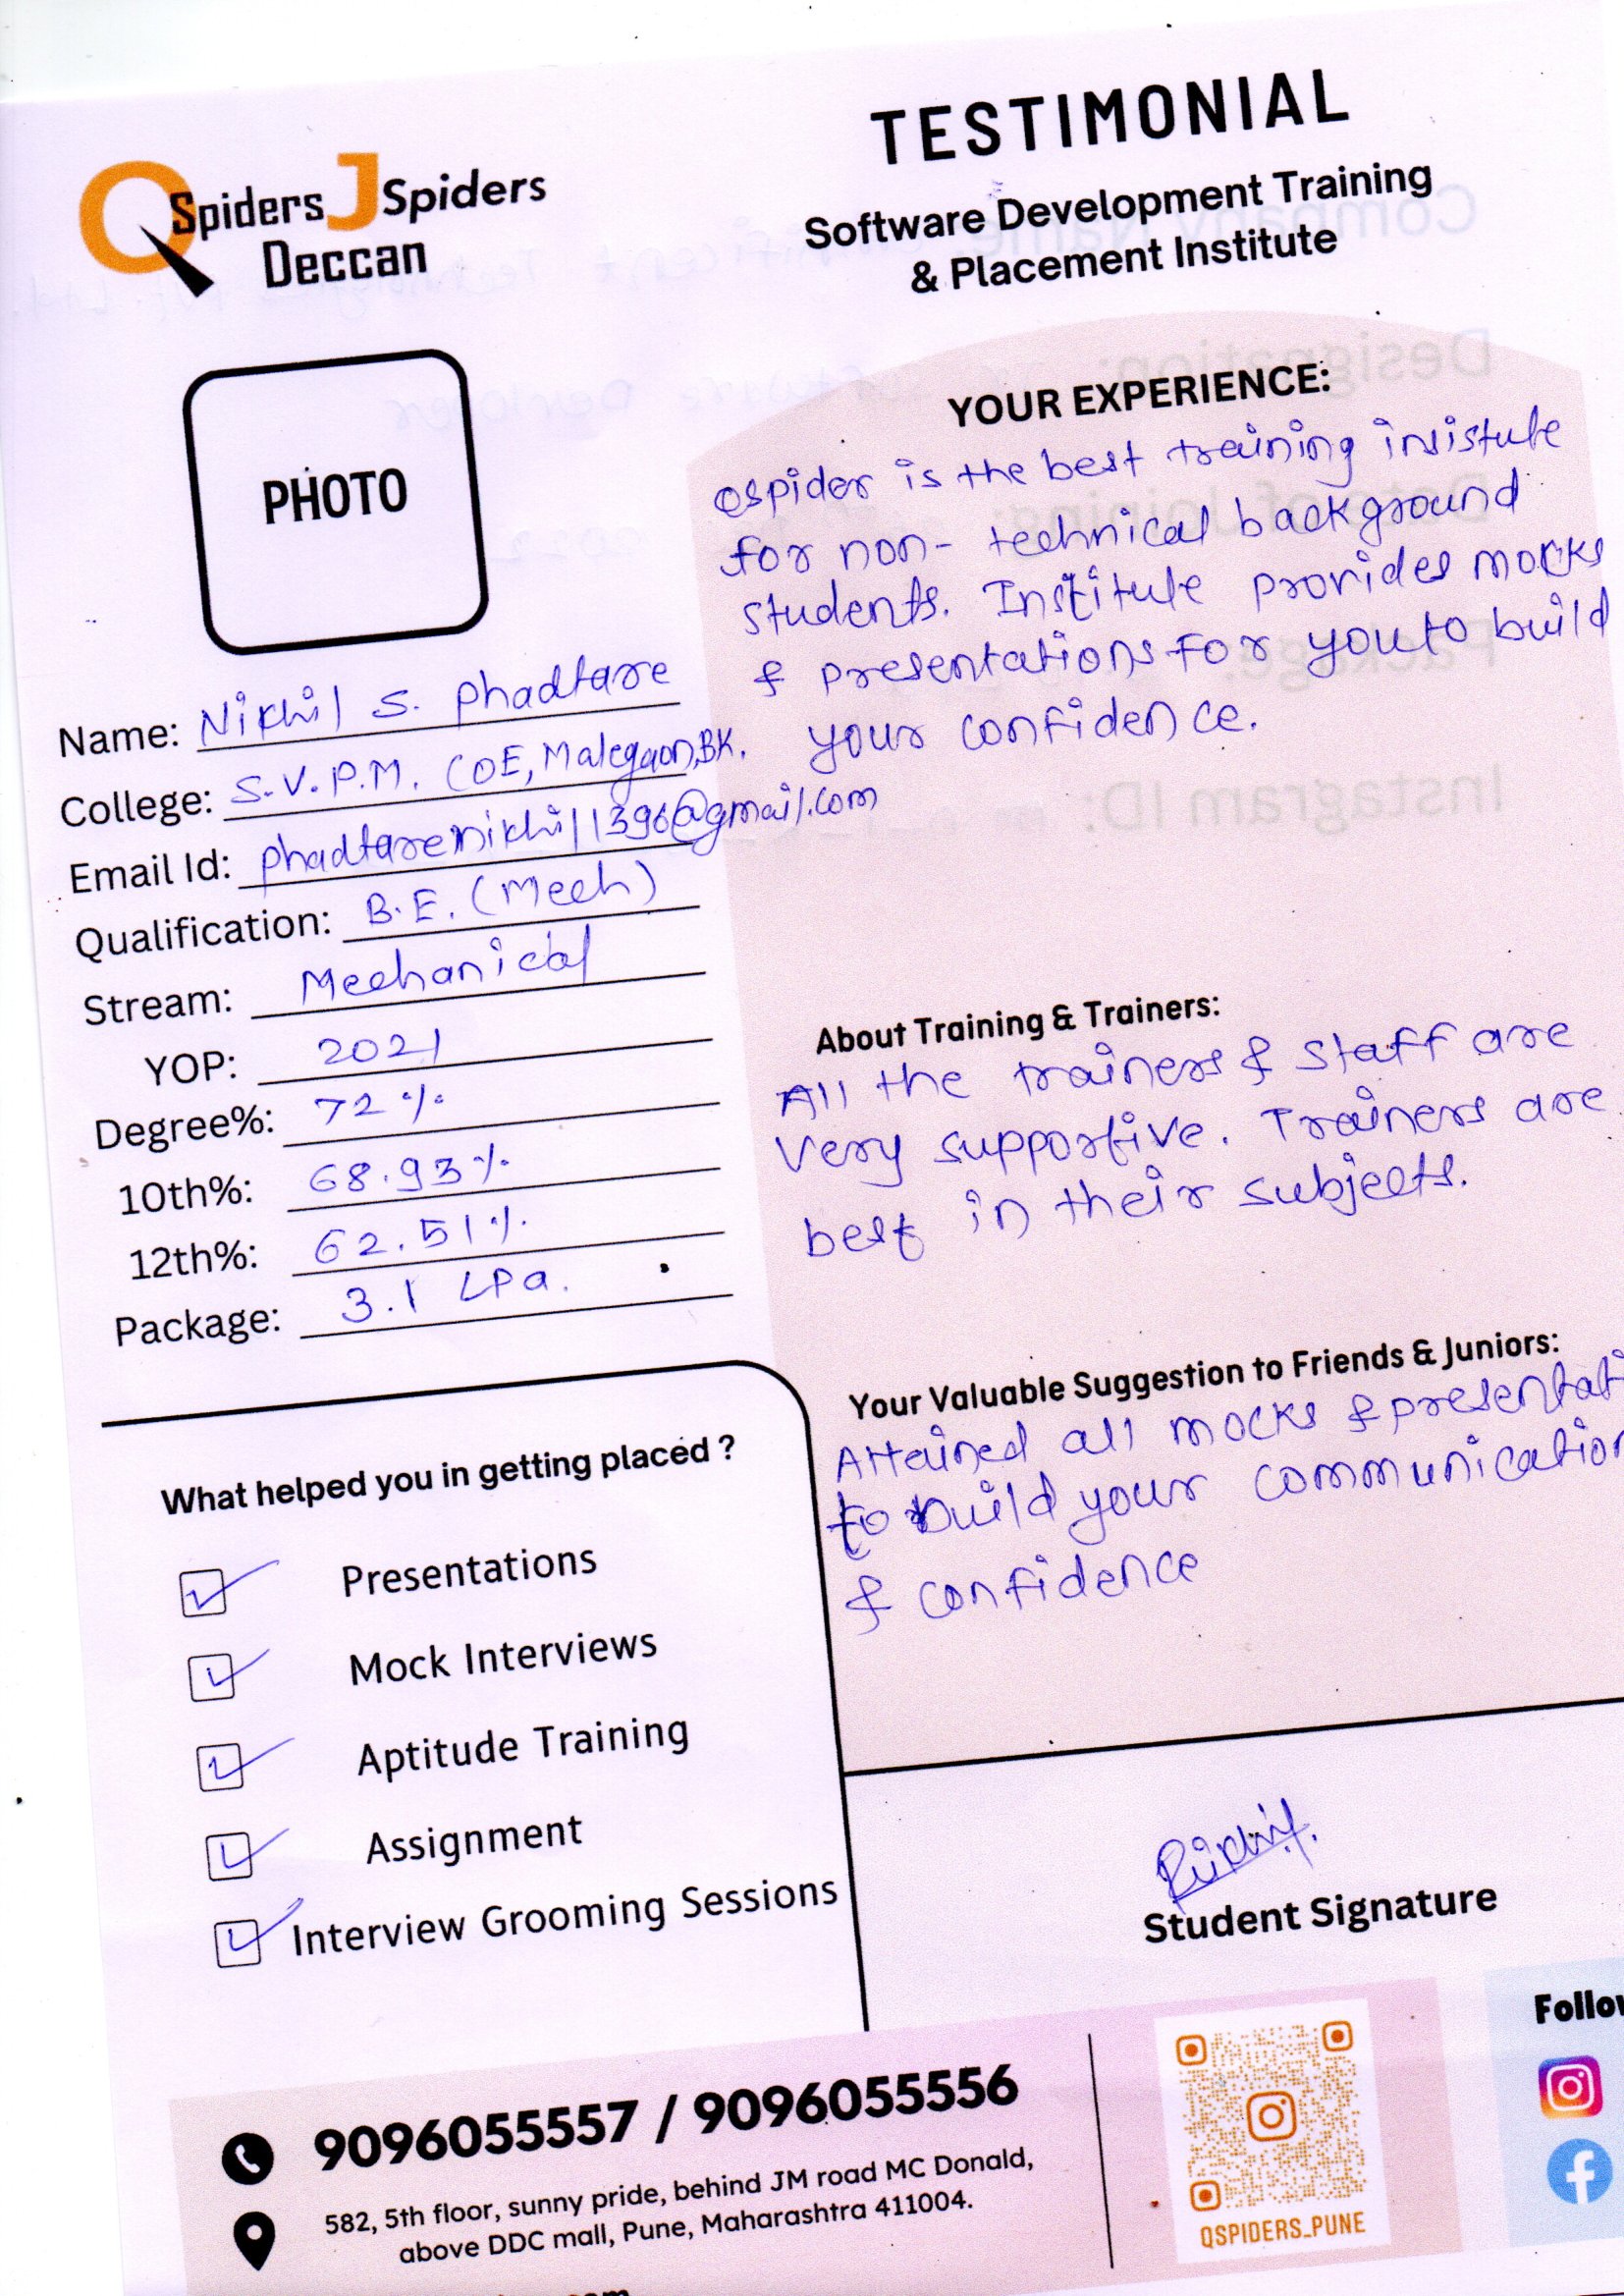 QSpiders JSpiders
Deccan
TESTIMONIAL
Software Development Training
& Placement Institute
PHOTO
Name: Nikhil S. Phadtare
College: S.V.P.M. COE, Malegaon,BK.
Email Id: phadtarenikhil1396@gmail.com
Qualification: B.E. (Mech)
Stream: Mechanical
YOP: 2021
Degree%: 72%
10th%: 68.93%
12th%: 62.51%
Package: 3.1 LPa.
YOUR EXPERIENCE:
Qspider is the best training insistute
for non- technical background
students. Institute provides mocks
& presentations for you to build
your confidence.
About Training & Trainers:
All the trainers & staff are
very supportive. Trainers are
best in their subjects.
Your Valuable Suggestion to Friends & Juniors:
Attained all mocks & presentati
to build your communication
& confidence
What helped you in getting placed ?
Presentations
Mock Interviews
Aptitude Training
Assignment
Interview Grooming Sessions
Student Signature
9096055557 / 9096055556
582, 5th floor, sunny pride, behind JM road MC Donald,
above DDC mall, Pune, Maharashtra 411004.
QSPIDERS_PUNE
Follow